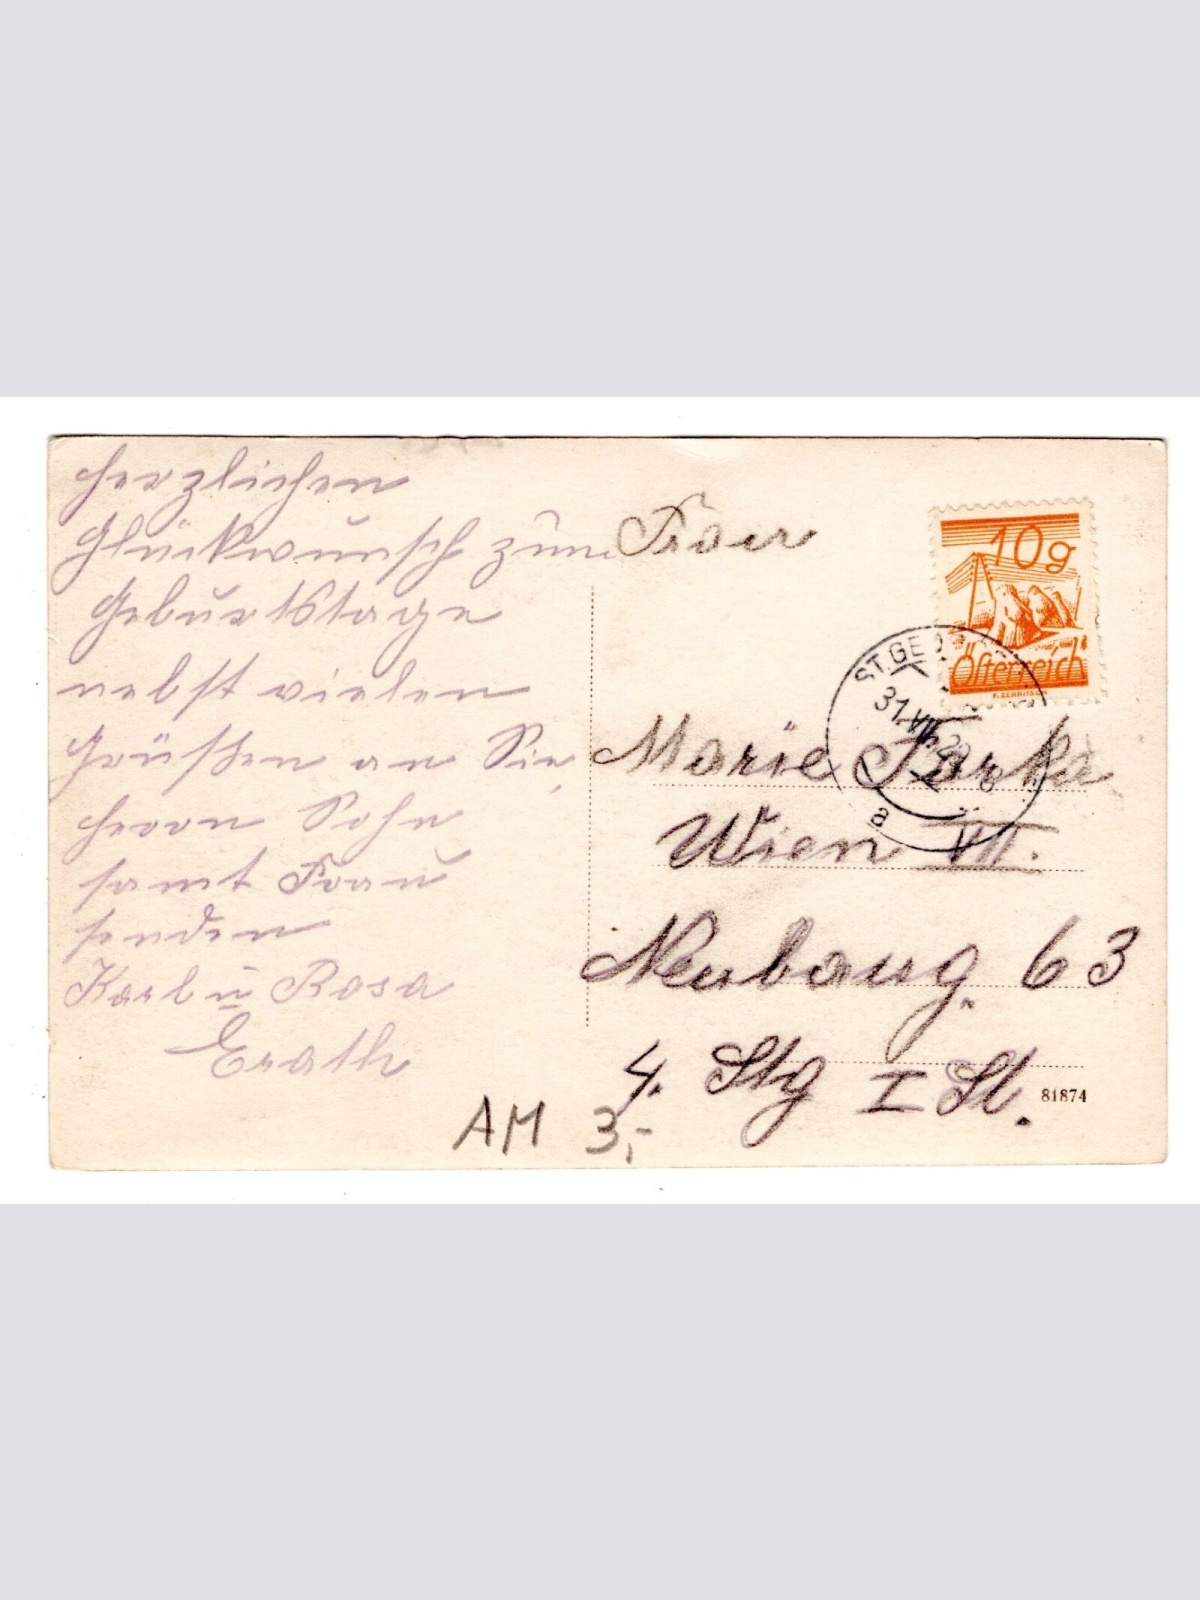 Herzlichen
Glückwunsch zum
Geburtstage
nebst vielen
Grüßen an Sie,
Herrn Sohn
samt Frau
senden
Karl u Rosa
Erath
Frau
10g
Österreich
ST.GE
31.VII.29
8
a
Marie
Wien VII.
Neubaug. 63
4. Stg I St.
81874
AM 3,-